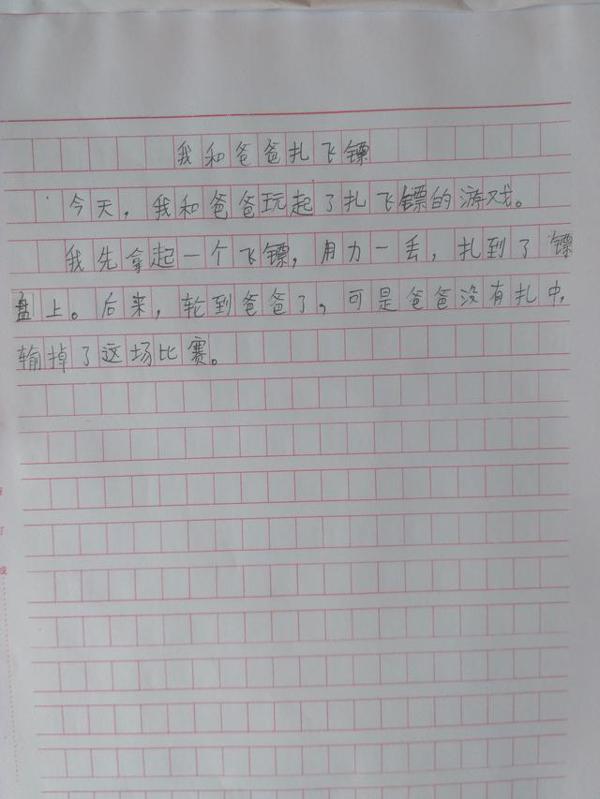 我和爸爸扎飞镖
今天，我和爸爸玩起了扎飞镖的游戏。
我先拿起一个飞镖，用力一丢，扎到了镖
盘上。后来，轮到爸爸了，可是爸爸没有扎中，
输掉了这场比赛。